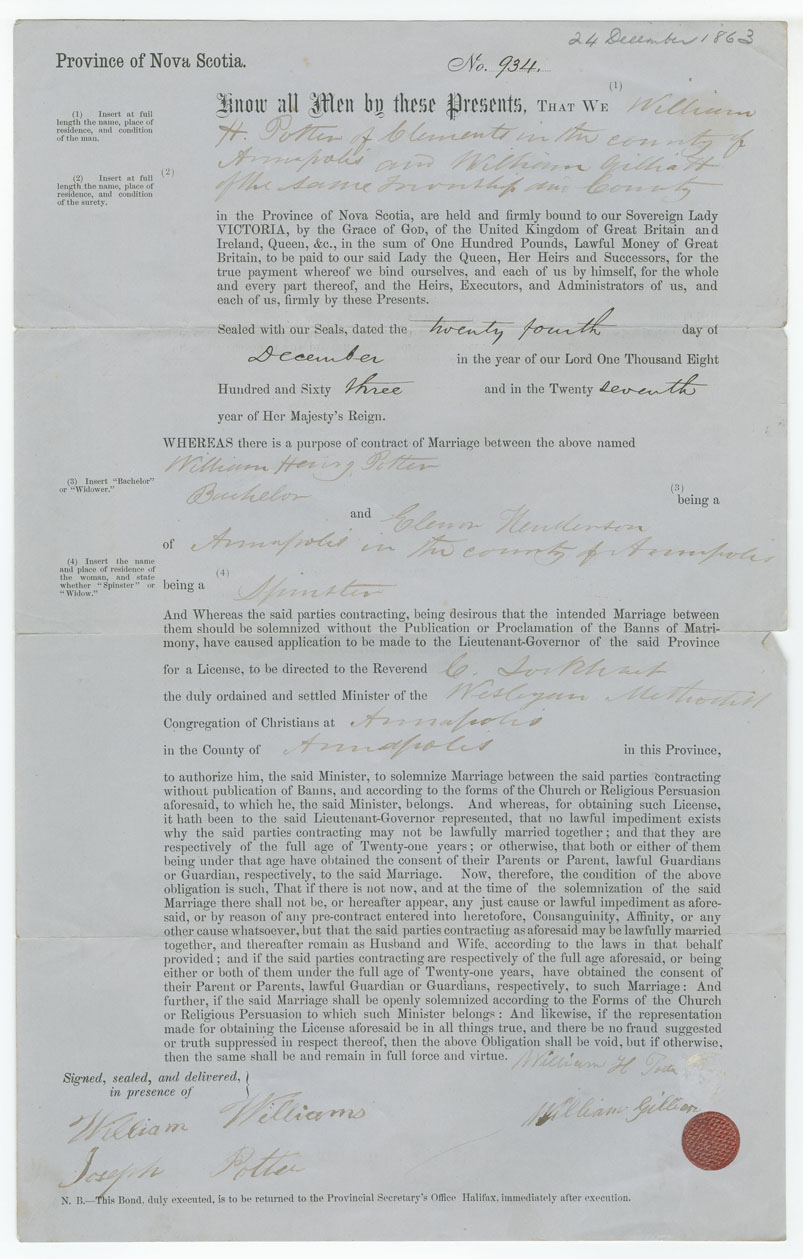 24 December 1863
Province of Nova Scotia.
No. 934.
(1) Insert at full
length the name, place of
residence, and condition
of the man.
(2) Insert at full
length the name, place of
residence, and condition
of the surety.
(1)
Know all Men by these Presents, THAT WE William
H. Potter of Clements in the county of
(2)
Annapolis and William Gilliatt
of the same Township and County
in the Province of Nova Scotia, are held and firmly bound to our Sovereign Lady
VICTORIA, by the Grace of GOD, of the United Kingdom of Great Britain and
Ireland, Queen, &c., in the sum of One Hundred Pounds, Lawful Money of Great
Britain, to be paid to our said Lady the Queen, Her Heirs and Successors, for the
true payment whereof we bind ourselves, and each of us by himself, for the whole
and every part thereof, and the Heirs, Executors, and Administrators of us, and
each of us, firmly by these Presents.
Sealed with our Seals, dated the twenty fourth day of
December in the year of our Lord One Thousand Eight
Hundred and Sixty three and in the Twenty seventh
year of Her Majesty's Reign.
WHEREAS there is a purpose of contract of Marriage between the above named
William Henry Potter
(3) Insert "Bachelor"
or "Widower."
(3)
Bachelor being a
and Elenor Henderson
of Annapolis in the county of Annapolis
(4) Insert the name
and place of residence of
the woman, and state
whether "Spinster" or
"Widow."
(4)
being a Spinster
And Whereas the said parties contracting, being desirous that the intended Marriage between
them should be solemnized without the Publication or Proclamation of the Banns of Matri-
mony, have caused application to be made to the Lieutenant-Governor of the said Province
for a License, to be directed to the Reverend C. Lockhart
the duly ordained and settled Minister of the Wesleyan Methodist
Congregation of Christians at Annapolis
in the County of Annapolis in this Province,
to authorize him, the said Minister, to solemnize Marriage between the said parties contracting
without publication of Banns, and according to the forms of the Church or Religious Persuasion
aforesaid, to which he, the said Minister, belongs. And whereas, for obtaining such License,
it hath been to the said Lieutenant-Governor represented, that no lawful impediment exists
why the said parties contracting may not be lawfully married together; and that they are
respectively of the full age of Twenty-one years; or otherwise, that both or either of them
being under that age have obtained the consent of their Parents or Parent, lawful Guardians
or Guardian, respectively, to the said Marriage. Now, therefore, the condition of the above
obligation is such, That if there is not now, and at the time of the solemnization of the said
Marriage there shall not be, or hereafter appear, any just cause or lawful impediment as afore-
said, or by reason of any pre-contract entered into heretofore, Consanguinity, Affinity, or any
other cause whatsoever, but that the said parties contracting as aforesaid may be lawfully married
together, and thereafter remain as Husband and Wife, according to the laws in that behalf
provided; and if the said parties contracting are respectively of the full age aforesaid, or being
either or both of them under the full age of Twenty-one years, have obtained the consent of
their Parent or Parents, lawful Guardian or Guardians, respectively, to such Marriage: And
further, if the said Marriage shall be openly solemnized according to the Forms of the Church
or Religious Persuasion to which such Minister belongs: And likewise, if the representation
made for obtaining the License aforesaid be in all things true, and there be no fraud suggested
or truth suppressed in respect thereof, then the above Obligation shall be void, but if otherwise,
then the same shall be and remain in full force and virtue.
William H
Signed, sealed, and delivered,
in presence of
William Williams
William Gillia
Joseph Potter
N. B.—This Bond, duly executed, is to be returned to the Provincial Secretary's Office Halifax, immediately after execution.